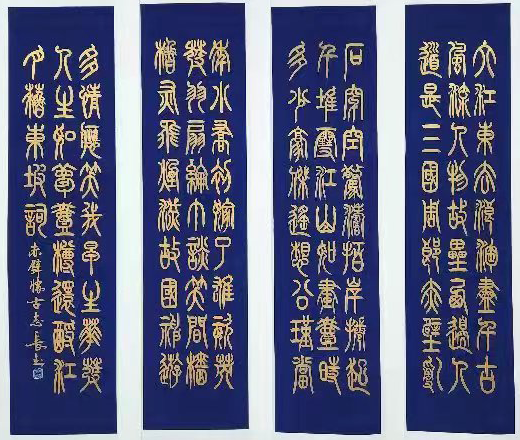 大江東去浪淘盡千古
風流人物故壘西邊人
道是三國周郎赤壁亂
石穿空驚濤拍岸捲起
千堆雪江山如畫壹時
多少豪傑遙想公瑾當
年小喬初嫁了雄姿英
發羽扇綸巾談笑間檣
櫓灰飛煙滅故國神遊
多情應笑我早生華發
人生如夢壹樽還酹江
月蘇東坡詞 赤壁懷古志長書